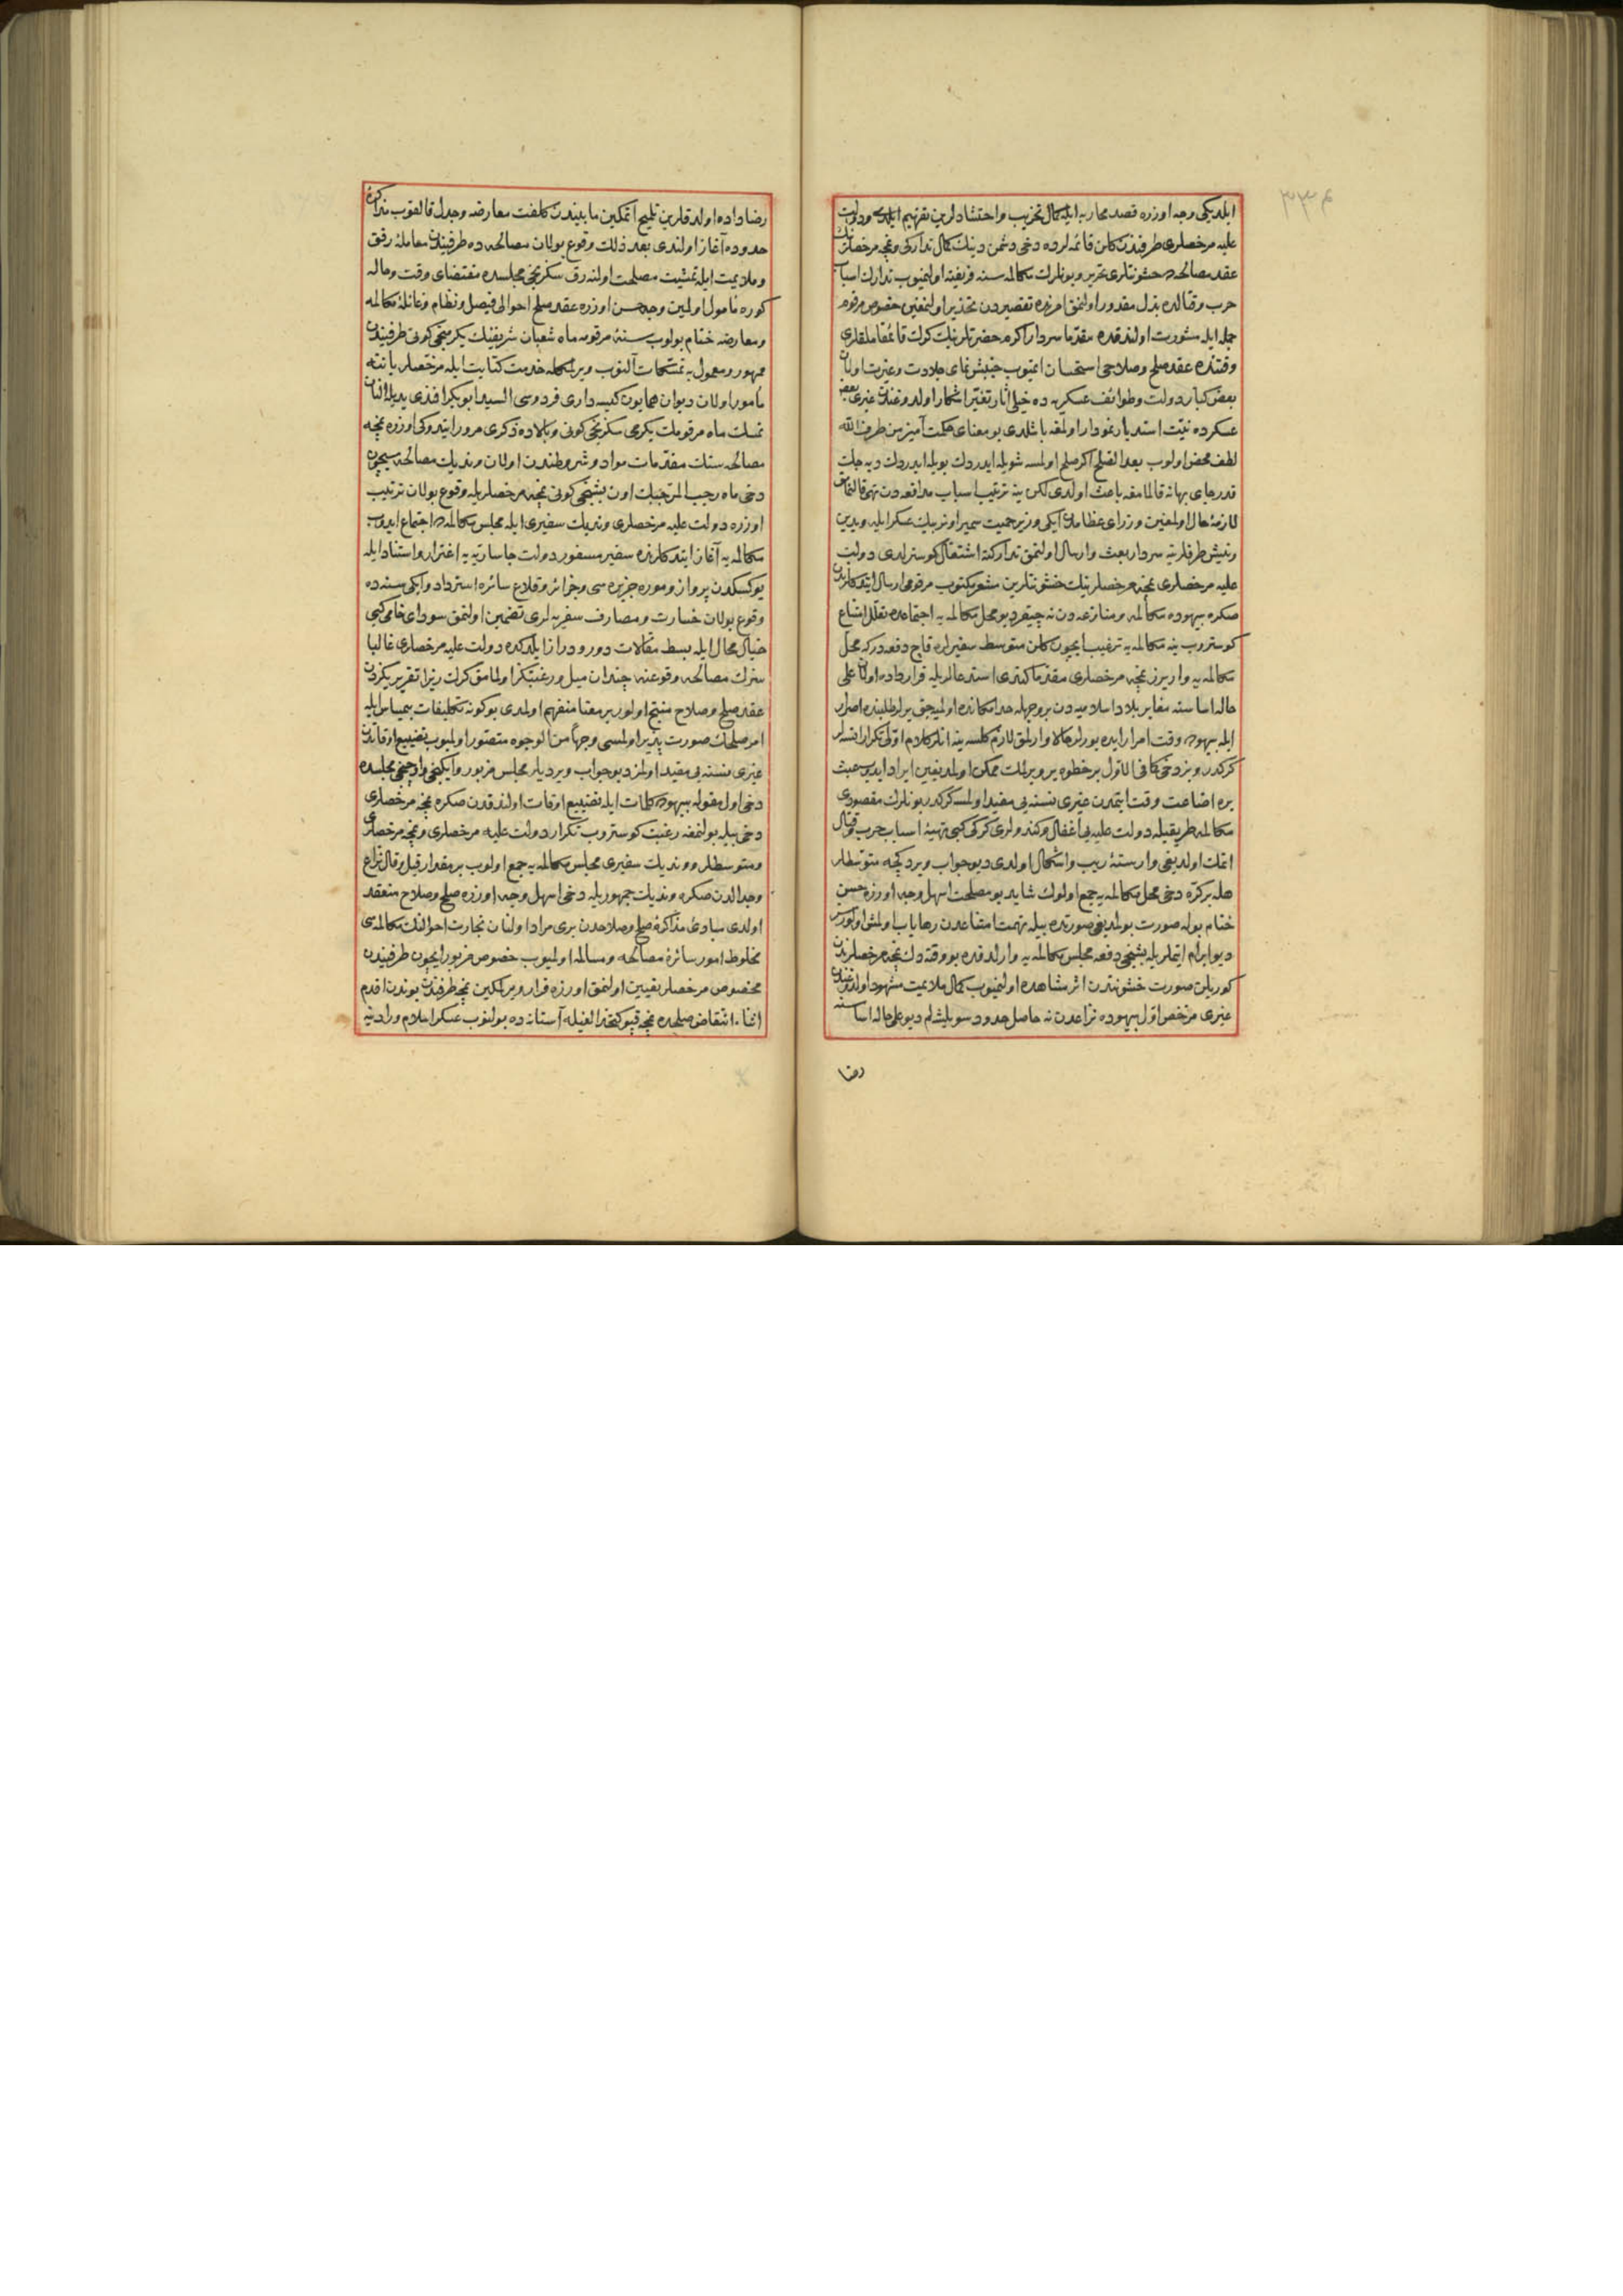 ٣٣٤
ايلديكى وجه اوزره قصد محاربه ايله كمال تحزيب واحتشادلرين تفهيم ايلدى ودولت
عليه مرخصلرى طرفندن كلن قائمه لرده دخى دشمن دينك كمال تداركى ونمچه مرخصلرينك
عقد مصالحه ده خشونتلرى تحرير وبونلرك مكالمه سنه فريفته اولنميوب تدارك اسباب
حرب وقتالده بذل مقدور اولنمق امرنده تقصيردن تحذير اولنمغين خصوص مرقوم
جمله ايله مشورت اولندقده مقدما سردار اكرم حضرتلرينك كرك قائمقاملقلرى
وقتنده عقد صلح وصلاحى استحسان ايتميوب جنبش نماى جلادت وغيرت اولان
بعض كبار دولت وطوائف عسكريه ده خيلى آثار تغير اشكار اولدوغندن غيرى بعض
عسكرده نيت استدبار نمودار اولمغه باشلدى بو معناى حكمت آميز من طرف الله
لطف محض اولوب بعد الصلح اكر صلح اولمسه شويله ايدردك بويله ايدردك ديه جك
قدر جاى بهانه قالمامغه باعث اولدى لكن ينه ترتيب اسباب مدافعه دن
لازمۀ حال اولمغين وزراى عظامدن ايكى وزير جمعيت سمير اونر بيك عسكر ايله ويدين
ونيش طرفلرينه سردار بعث وارسال اولنمق تداركنه اشتغال كوسترلدى دولت
عليه مرخصلرى نمچه مرخصلرينك خشونتلرين مشعر مكتوب مرقومى ارسال ايتدكلرندن
صكره بيهوده مكالمه ومنازعه دن نه چيقر ديو محل مكالمه يه اجتماعده تعلل وامتناع
كوستروب ينه مكالمه يه ترغيب ايچون كلن متوسط سفيرلره قاچ دفعه دركه محل
مكالمه يه واريرز نمچه مرخصلرى مقدما كندى استدعالريله قرارداده اولان على
حاله اساسنه مغاير بلاد اسلاميه دن بر وجهله حد امكانده اولميه جق يرلر طلبنده اصرار
ايله بيهوده وقت امرار ايده يورلر حالا وارلمق لازم كلسه ينه انلر كلام اولى تكرار ايتسه لر
كركدر وبز دخى كافى الاول بر خطوه ير ويرلمك ممكن اولمديغين ايراد ايدوب عبث
يره اضاعت وقت ايتمدن غيرى نسنه يى مفيد اولمسه كركدر بونلرك مقصودى
مكالمه طريقيله دولت عليه يى اغفال وكندولرى كركى كبى تهيئۀ اسباب حرب وقتال
ايتمك اولديغى وارستۀ ريب واشكال اولدى ديو جواب ويردكچه متوسطلر
هله بر كره دخى محل مكالمه يه جمع اولوك شايد بو مصلحت اسهل وجه اوزره حسن
ختام بوله صورت بولمديغى صورتده بيله تهمت امتناعدن رهاياب اولمش اولورسز
ديو ابرام ايتملريله بشنجى دفعه مجلس مكالمه يه وارلدقده بو وقته دك نمچه مرخصلرندن
كوريلن صورت خشونتدن اثر مشاهده اولنميوب كمال ملايمت مشهود اولدوغندن
غيرى مرخص اول بيهوده نزاعدن نه حاصل حدود سويليشه لم ديو على حاله اساسنه
رضا
رضاداده اولدقلرين تلميح ايتمكين مابيندن كلفت معارضه وجدل قالقوب مذاكرۀ
حدوده آغاز اولندى بعد ذلك وقوع بولان مصالحه ده طرفيندن معاملۀ رفق
وملايمت ايله تمشيت مصلحت اولنه رق سكزنجى مجلسده مقتضاى وقت وحاله
كوره مأمول اولمين وجه حسن اوزره عقد صلح احوالى فيصل ونظام وغائلۀ مكالمه
ومعارضه ختام بولوب سنۀ مرقومه ماه شعبان شريفينك يكرمنجى كونى طرفيندن
ممهور ومعمول به تمسكات آلنوب ويرلمكله خدمت كتابت ايله مرخصلر ياننه
مأمور اولان ديوان همايون كيسه دارى فردوسى السيد ابوبكر افندى يديله النان
تمسك ماه مرقومك يكرمى سكزنجى كونى وبالاده ذكرى مرور ايتدوكى اوزره نمچه
مصالحه سنك مقدمات مواد وشروطندن اولان ونديك مصالحه سيچون
دخى ماه رجب المرجبك اون بشنجى كونى نمچه مرخصلريله وقوع بولان ترتيب
اوزره دولت عليه مرخصلرى ونديك سفيرى ايله مجلس مكالمه ده اجتماع ايدوب
مكالمه يه آغاز ايتدكلرنده سفير مسفور دولت جاسارينه اغترار واستناد ايله
يوكسكدن پرواز وموره جزيره سى وجزائر وقلاع سائره استرداد وايكى سنه ده
وقوع بولان خسارت ومصارف سفريه لرى تضمين اولنمق سوداى خامى كبى
خيال محال ايله بسط مقالات دور ودراز ايلدكده دولت عليه مرخصلرى غالبا
سزك مصالحه وقوعنه چندان ميل ورغبتكز اولمامق كرك زيرا تقريريكزدن
عقد صلح وصلاح منتج اولور بر معنا منفهم اولمدى بو كونه تكليفات بيمياس ايله
امر صلحك صورت پذير اولمسى وجهاً من الوجوه متصور اولميوب تضييع اوقاتدن
غيرى نسنه يى مفيد اولمز ديو جواب ويرديلر مجلس مزبور وايكنجى واوچنجى مجلسده
دخى اول مقوله بيهوده كلمات ايله تضييع اوقات اولندقدن صكره نمچه مرخصلرى
دخى بيله بولنمغه رغبت كوستروب تكرار دولت عليه مرخصلرى ونمچه مرخصلرى
ومتوسطلر وونديك سفيرى مجلس مكالمه يه جمع اولوب بر مقدار قيل وقال نزاع
وجدالدن صكره ونديك جمهوريله دخى اسهل وجه اوزره صلح وصلاح منعقد
اولدى مبادئ مذاكرۀ صلح وصلاحدن برى مراد اولنان تجارت احوالنك مكالمه سى
مخلوط امور سائرۀ مصالحه ومسالمه اولميوب خصوص مزبور ايچون طرفيندن
مخصوص مرخصلر تعيين اولنمق اوزره قرار ويرلمكين نمچه طرفندن بوندن اقدم
اثناء انتقاض صلحده نمچه قپو كتخدالغيله آستانه ده بولنوب عسكر اسلام وراديه